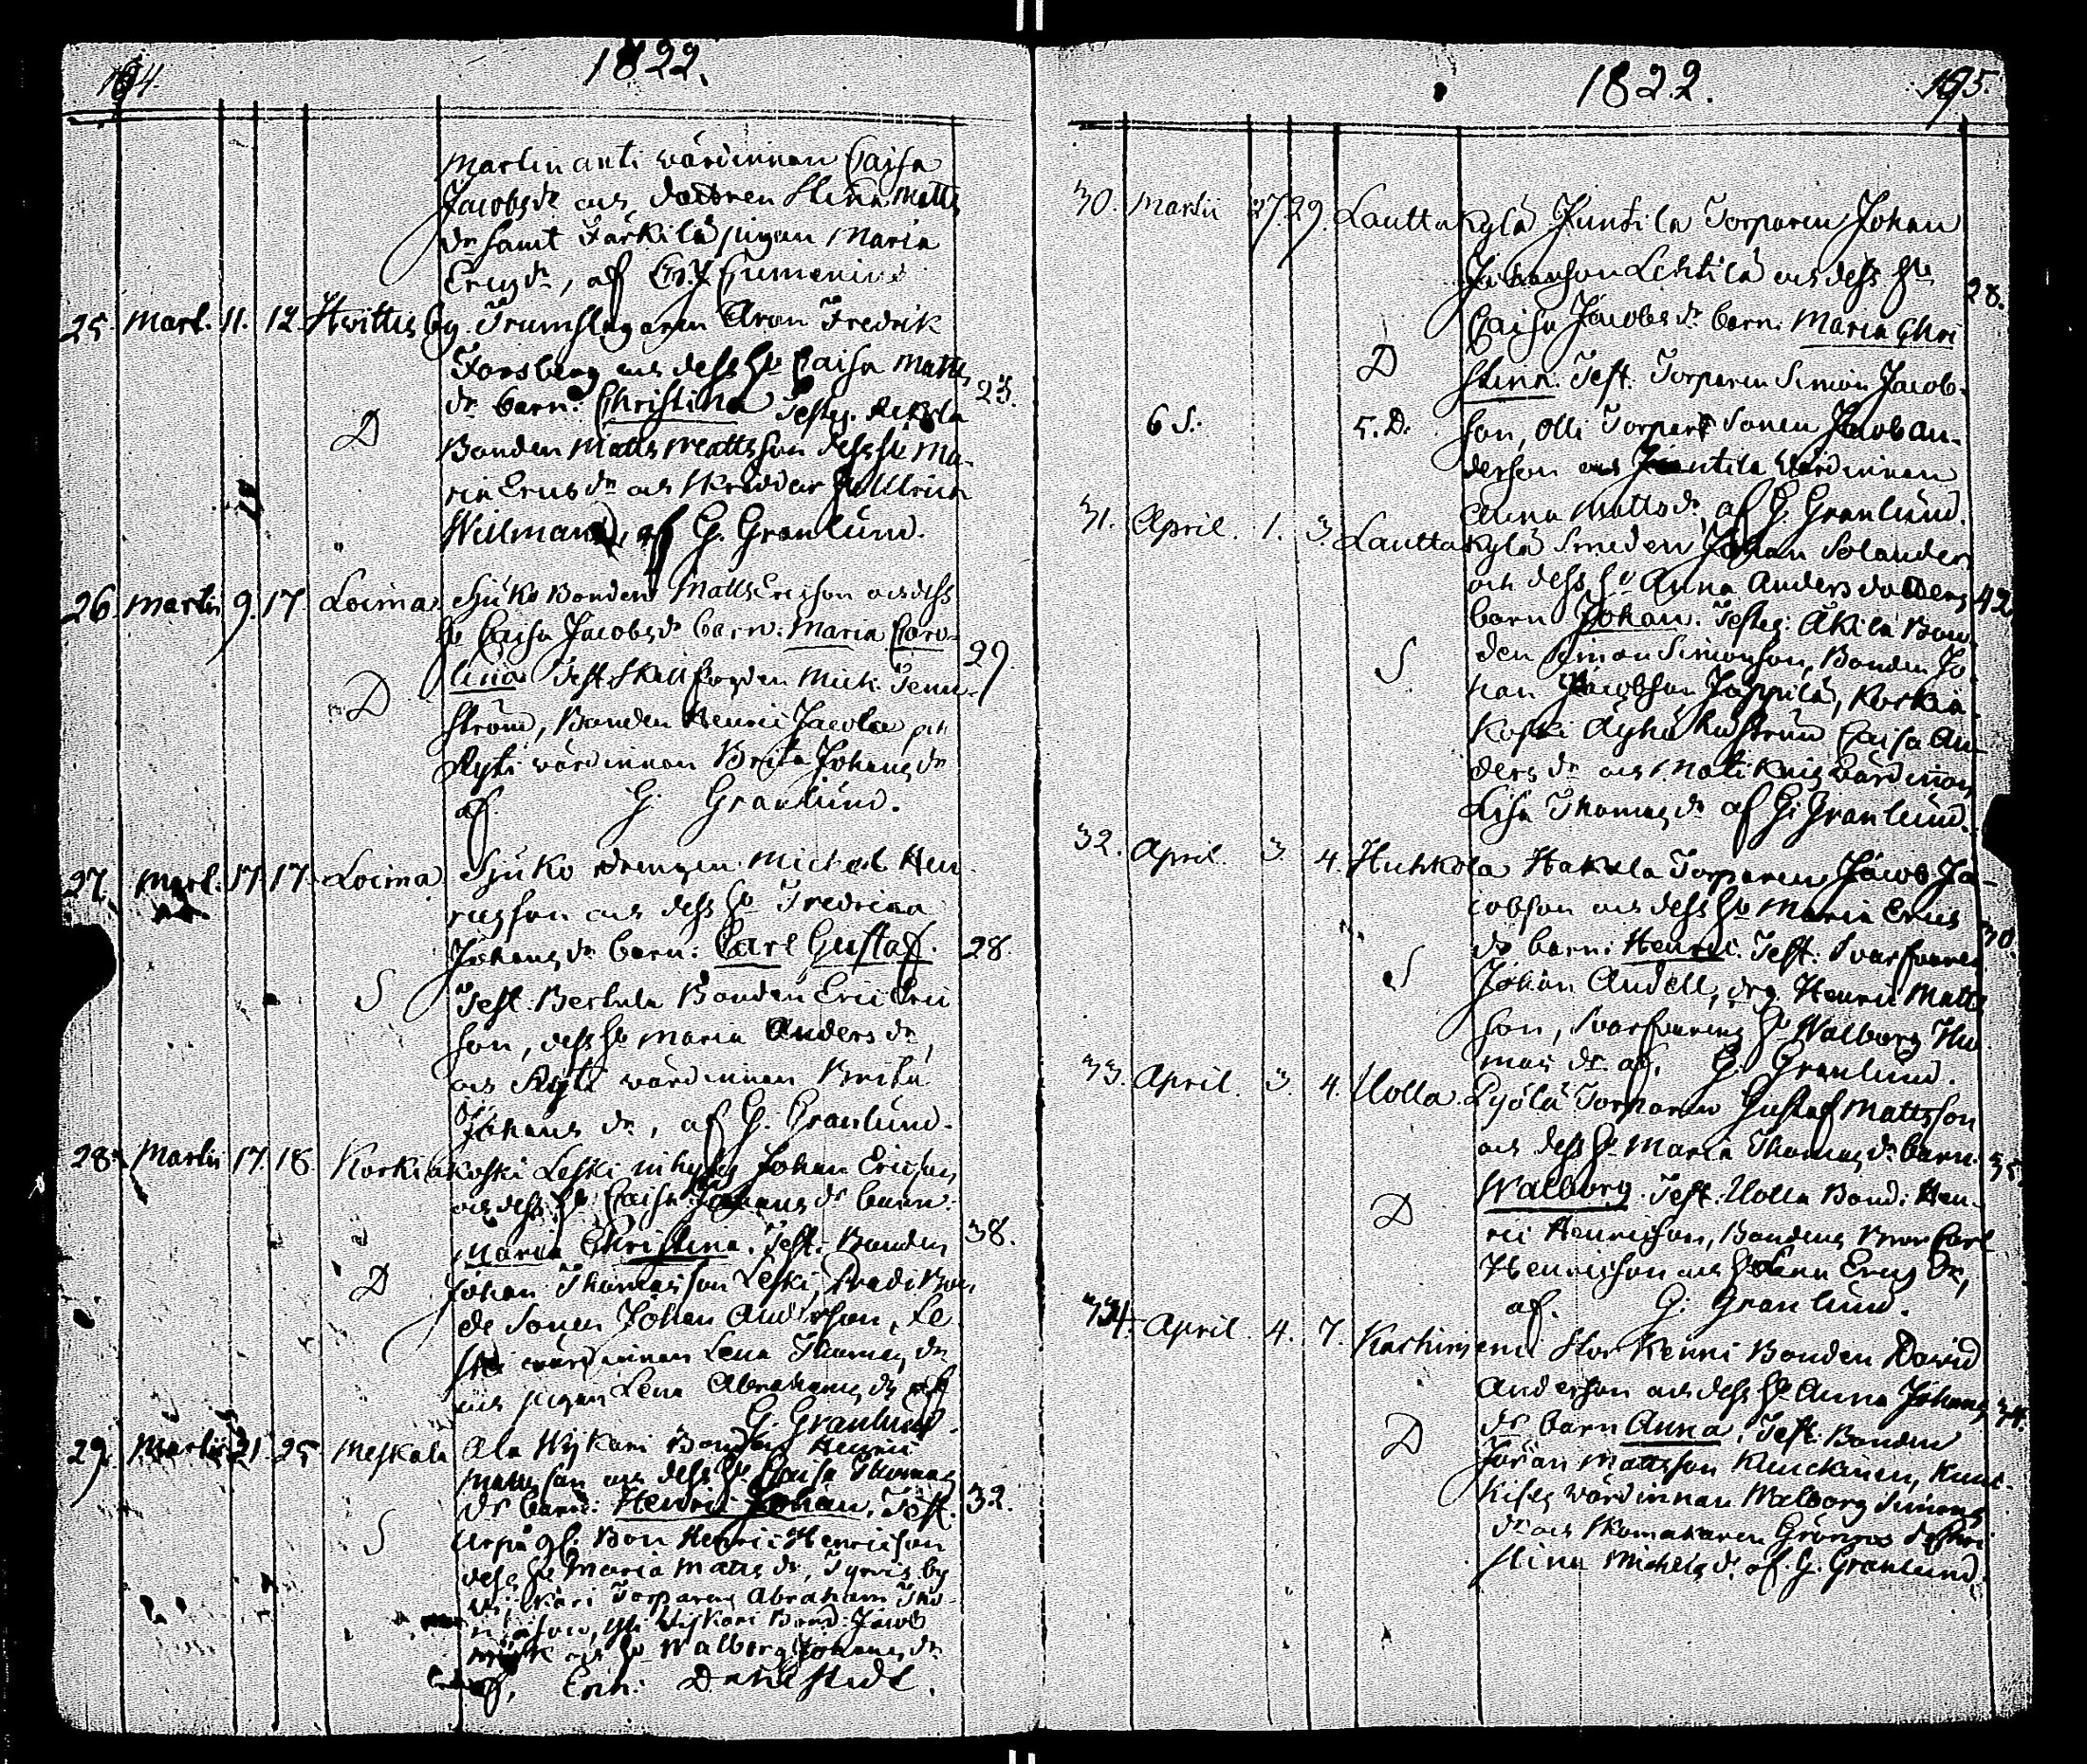 194. 1822.
Martin anti wärdinnan Caisa
Jacobsdr och dottren Stina Matts
dr samt Färkilä pigan Maria
Ericsdr, af Cumenius
25. Mart. 11. 12. Hvittis by. Trumslagaren Aron Fredrik
Forsberg och dess Hu Caisa Matts
dr barn: Christina Testes: 23.
D Bonden Matts Mattsson dess Hu Ma-
ria Ericsdr och Ulrica
Willman, af G. Granlund.
26. Martii 9. 17. Loima. Sjuko Bonden Matts Ericson och dess
Hu Caisa Jacobsdr barn: Maria Caro- 29.
lina Test. Mich. Tenn-
D ström, Bonden Henric Jacola och
Ryti wärdinnan Brita Johansdr
af G. Granlund.
27. Mart. 17. 17. Loima Sjuko drengen Michel Hen-
ricsson och dess Hu Fredrica
Johansdr barn: Carl Gustaf. 28.
S Test. Bertula Bonden Eric Eric
son, dess Hu Maria Andersdr,
och Ryti wärdinnan Brita
Johansdr, af G. Granlund.
28. Martii 17. 18. Korkiakoski Leski inhyses Johan Ericson
och dess Hu Caisa Johansdr barn:
Maria Christina. Test. Bonden 38.
D Johan Thomasson Leski, Bon
de Sonen Johan Andersson, Le
ski wärdinnan Lena Thomasdr
och pigan Lena Abrahamsdr af
G. Granlund.
29. Martii 21. 25. Meskala Ala Wijkari Bonden Henric
Mattsson och dess Hu Caisa Thomas
dr barn: Henric Johan. Test. 32.
S Bon Henric Henricson
dess Hu Maria Mattsdr, Tyrvis by
Torparen Abraham Tho-
masson, Wijkari Bond: Jacob
och Hu Walborg Johansdr
af, Eric: Dahlstedt.
1822. 195.
30. Martii 27. 29. Lauttakylä Juntila Torparen Johan
Johansson Lehtilä och dess Hu 28.
Caisa Jacobsdr barn: Maria Chri
D stina. Test. Torparen Simon Jacob-
6 S. 5. D. son, Olli Torpare Sonen Jacob An-
dersson och Juntila wärdinnan
Anna Mattsdr, af G. Granlund.
31. April. 1. 3. Lauttakylä Smeden Johan Solander
och dess Hu Anna Anders dotters 42.
barn Johan. Testes: Äkilä Bon
S den Simon Simonson, Bonden Jo
han Jacobson Jäppilä, Korkia
koski Äyhä hustrun Caisa An
dersdr och wärdinnan
Lisa Thomasdr af G. Granlund.
32. April. 3. 4. Huhkola Hakula Torparen Jacob Ja-
cobson och dess Hu Maria Erics 30
dr barn: Henric. Test: Svarfvaren
S Johan Andell, drg. Henric Matts
son, Svarfvarens Hu Walborg Tho
mas dr. af, G. Granlund.
33. April. 3. 4. Uolla. Pyölä Torparen Gustaf Mattsson
och dess Hu Maria Thomasdr barn. 35.
Walborg. Test. Uolla Bond: Hen-
D ric Henricson, Bondens Bror Carl
Henricsson och Hu Lena Erics Dr,
af. G. Granlund.
34. April. 4. 7. Karhiniemi Stor Kenni Bonden David
Andersson och dess Hu Anna Johans 34.
dr barn Anna. Test. Bonden
D Jöran Mattsson Kuuckinen,
wärdinnan Walborg Simons
dr och Skomakaren Grönroos dess Chri
stina Michelsdr. af. G. Granlund.